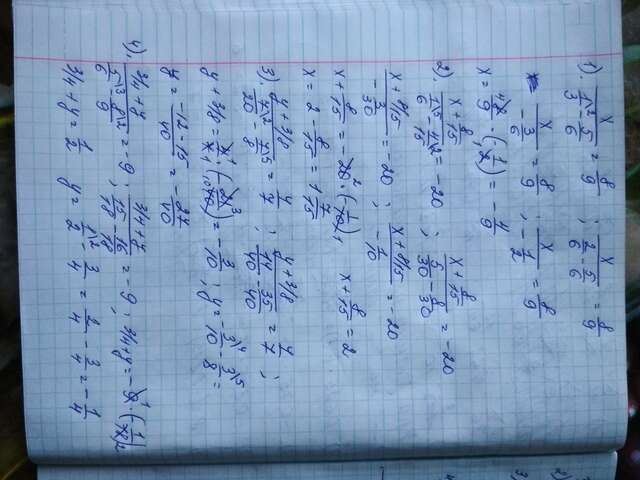 1). x / (1/3 - 5/6) = 8/9 ; x / (2/6 - 5/6) = 8/9
x / (-3/6) = 8/9 ; x / (-1/2) = 8/9
x = 8/9 · (-1/2) = -4/9
2). (x + 8/15) / (1/6 - 4/15) = -20 ; (x + 8/15) / (5/30 - 8/30) = -20
(x + 8/15) / (-3/30) = -20 ; (x + 8/15) / (-1/10) = -20
x + 8/15 = -20 · (-1/10) ; x + 8/15 = 2
x = 2 - 8/15 = 1 7/15
= 4/7 ;
= 4/7 ;
= -3/10 ; y = -3/10 - 3/8 =
y = (-12-15)/40 = -27/40
4). (3/4 + y) / (5/6 - 8/9) = -9 ; (3/4 + y) / (15/18 - 16/18) = -9 ; 3/4 + y = -9 · (-1/18)
3/4 + y = 1/2 y = 1/2 - 3/4 = 2/4 - 3/4 = -1/4